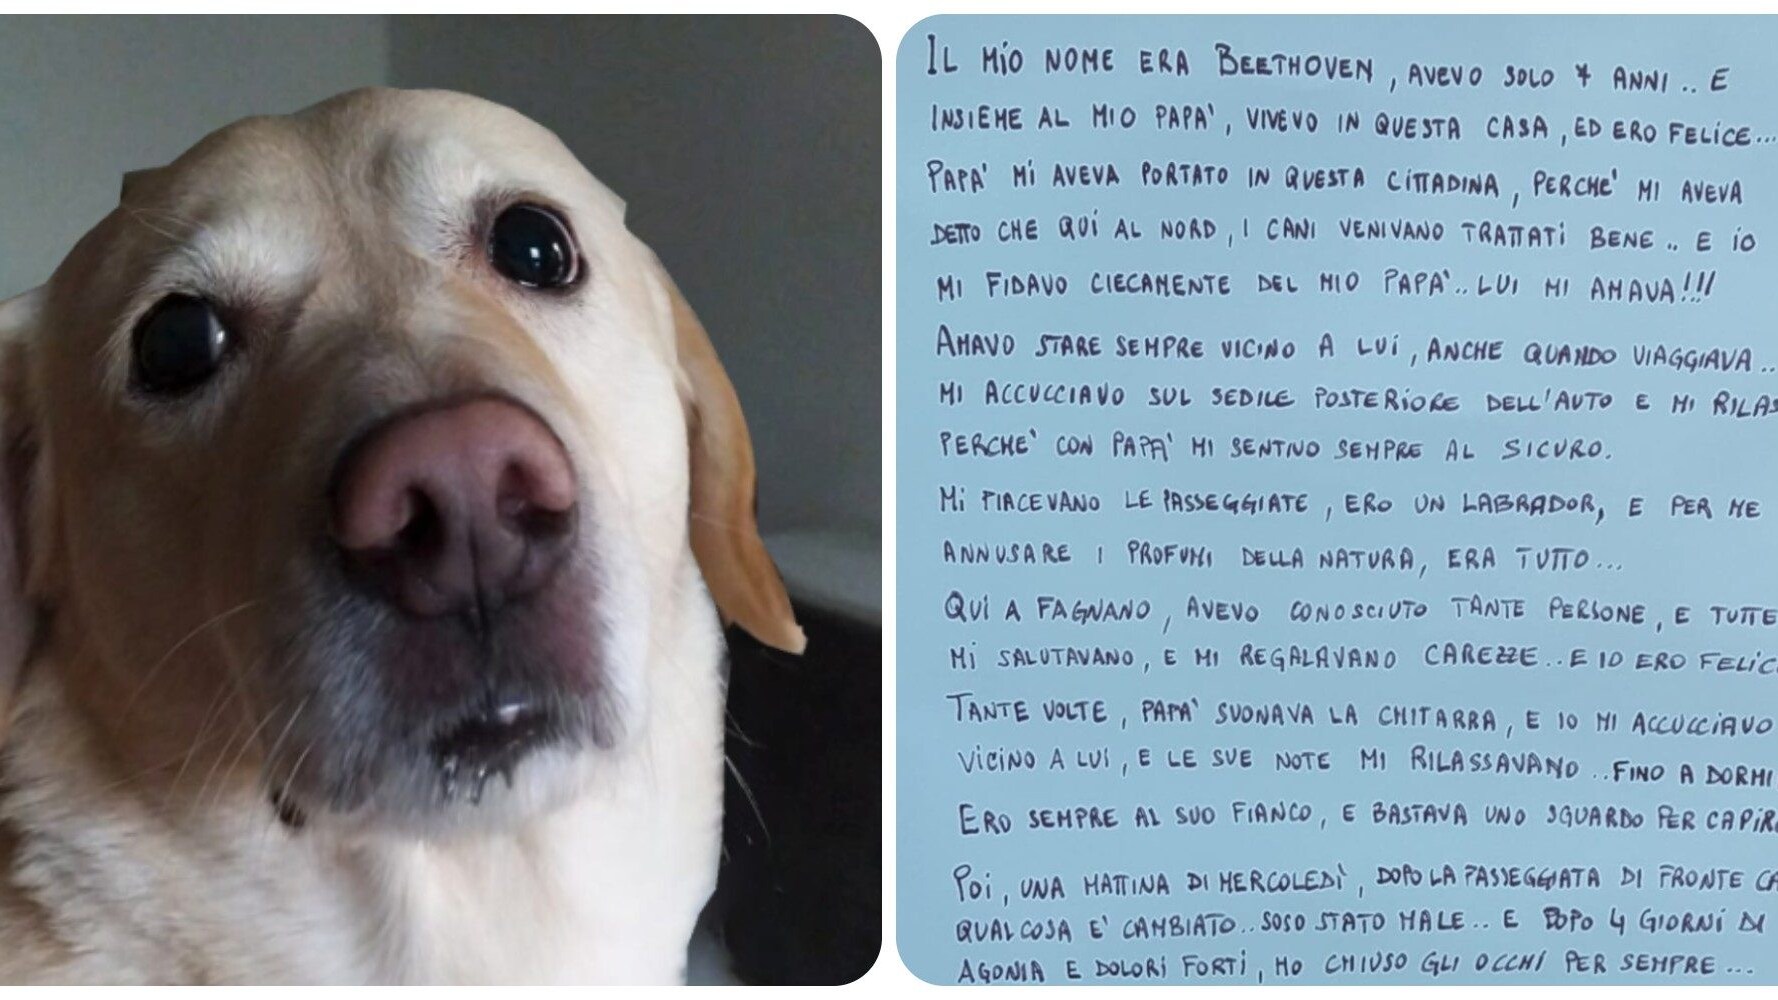 IL MIO NOME ERA BEETHOVEN, AVEVO SOLO 7 ANNI.. E
INSIEME AL MIO PAPA', VIVEVO IN QUESTA CASA, ED ERO FELICE...
PAPA' MI AVEVA PORTATO IN QUESTA CITTADINA, PERCHE' MI AVEVA
DETTO CHE QUI AL NORD, I CANI VENIVANO TRATTATI BENE.. E IO
MI FIDAVO CIECAMENTE DEL MIO PAPA'.. LUI MI AMAVA!!!
AMAVO STARE SEMPRE VICINO A LUI, ANCHE QUANDO VIAGGIAVA..
MI ACCUCCIAVO SUL SEDILE POSTERIORE DELL'AUTO E MI RILAS
PERCHE' CON PAPA' MI SENTIVO SEMPRE AL SICURO.
MI PIACEVANO LE PASSEGGIATE, ERO UN LABRADOR, E PER ME
ANNUSARE I PROFUMI DELLA NATURA, ERA TUTTO...
QUI A FAGNANO, AVEVO CONOSCIUTO TANTE PERSONE, E TUTTE
MI SALUTAVANO, E MI REGALAVANO CAREZZE.. E IO ERO FELIC
TANTE VOLTE, PAPA' SUONAVA LA CHITARRA, E IO MI ACCUCCIAVO
VICINO A LUI, E LE SUE NOTE MI RILASSAVANO.. FINO A DORMI
ERO SEMPRE AL SUO FIANCO, E BASTAVA UNO SGUARDO PER CAPIR
POI, UNA MATTINA DI MERCOLEDI', DOPO LA PASSEGGIATA DI FRONTE CA
QUALCOSA E' CAMBIATO.. SOSO STATO MALE.. E DOPO 4 GIORNI DI
AGONIA E DOLORI FORTI, HO CHIUSO GLI OCCHI PER SEMPRE...